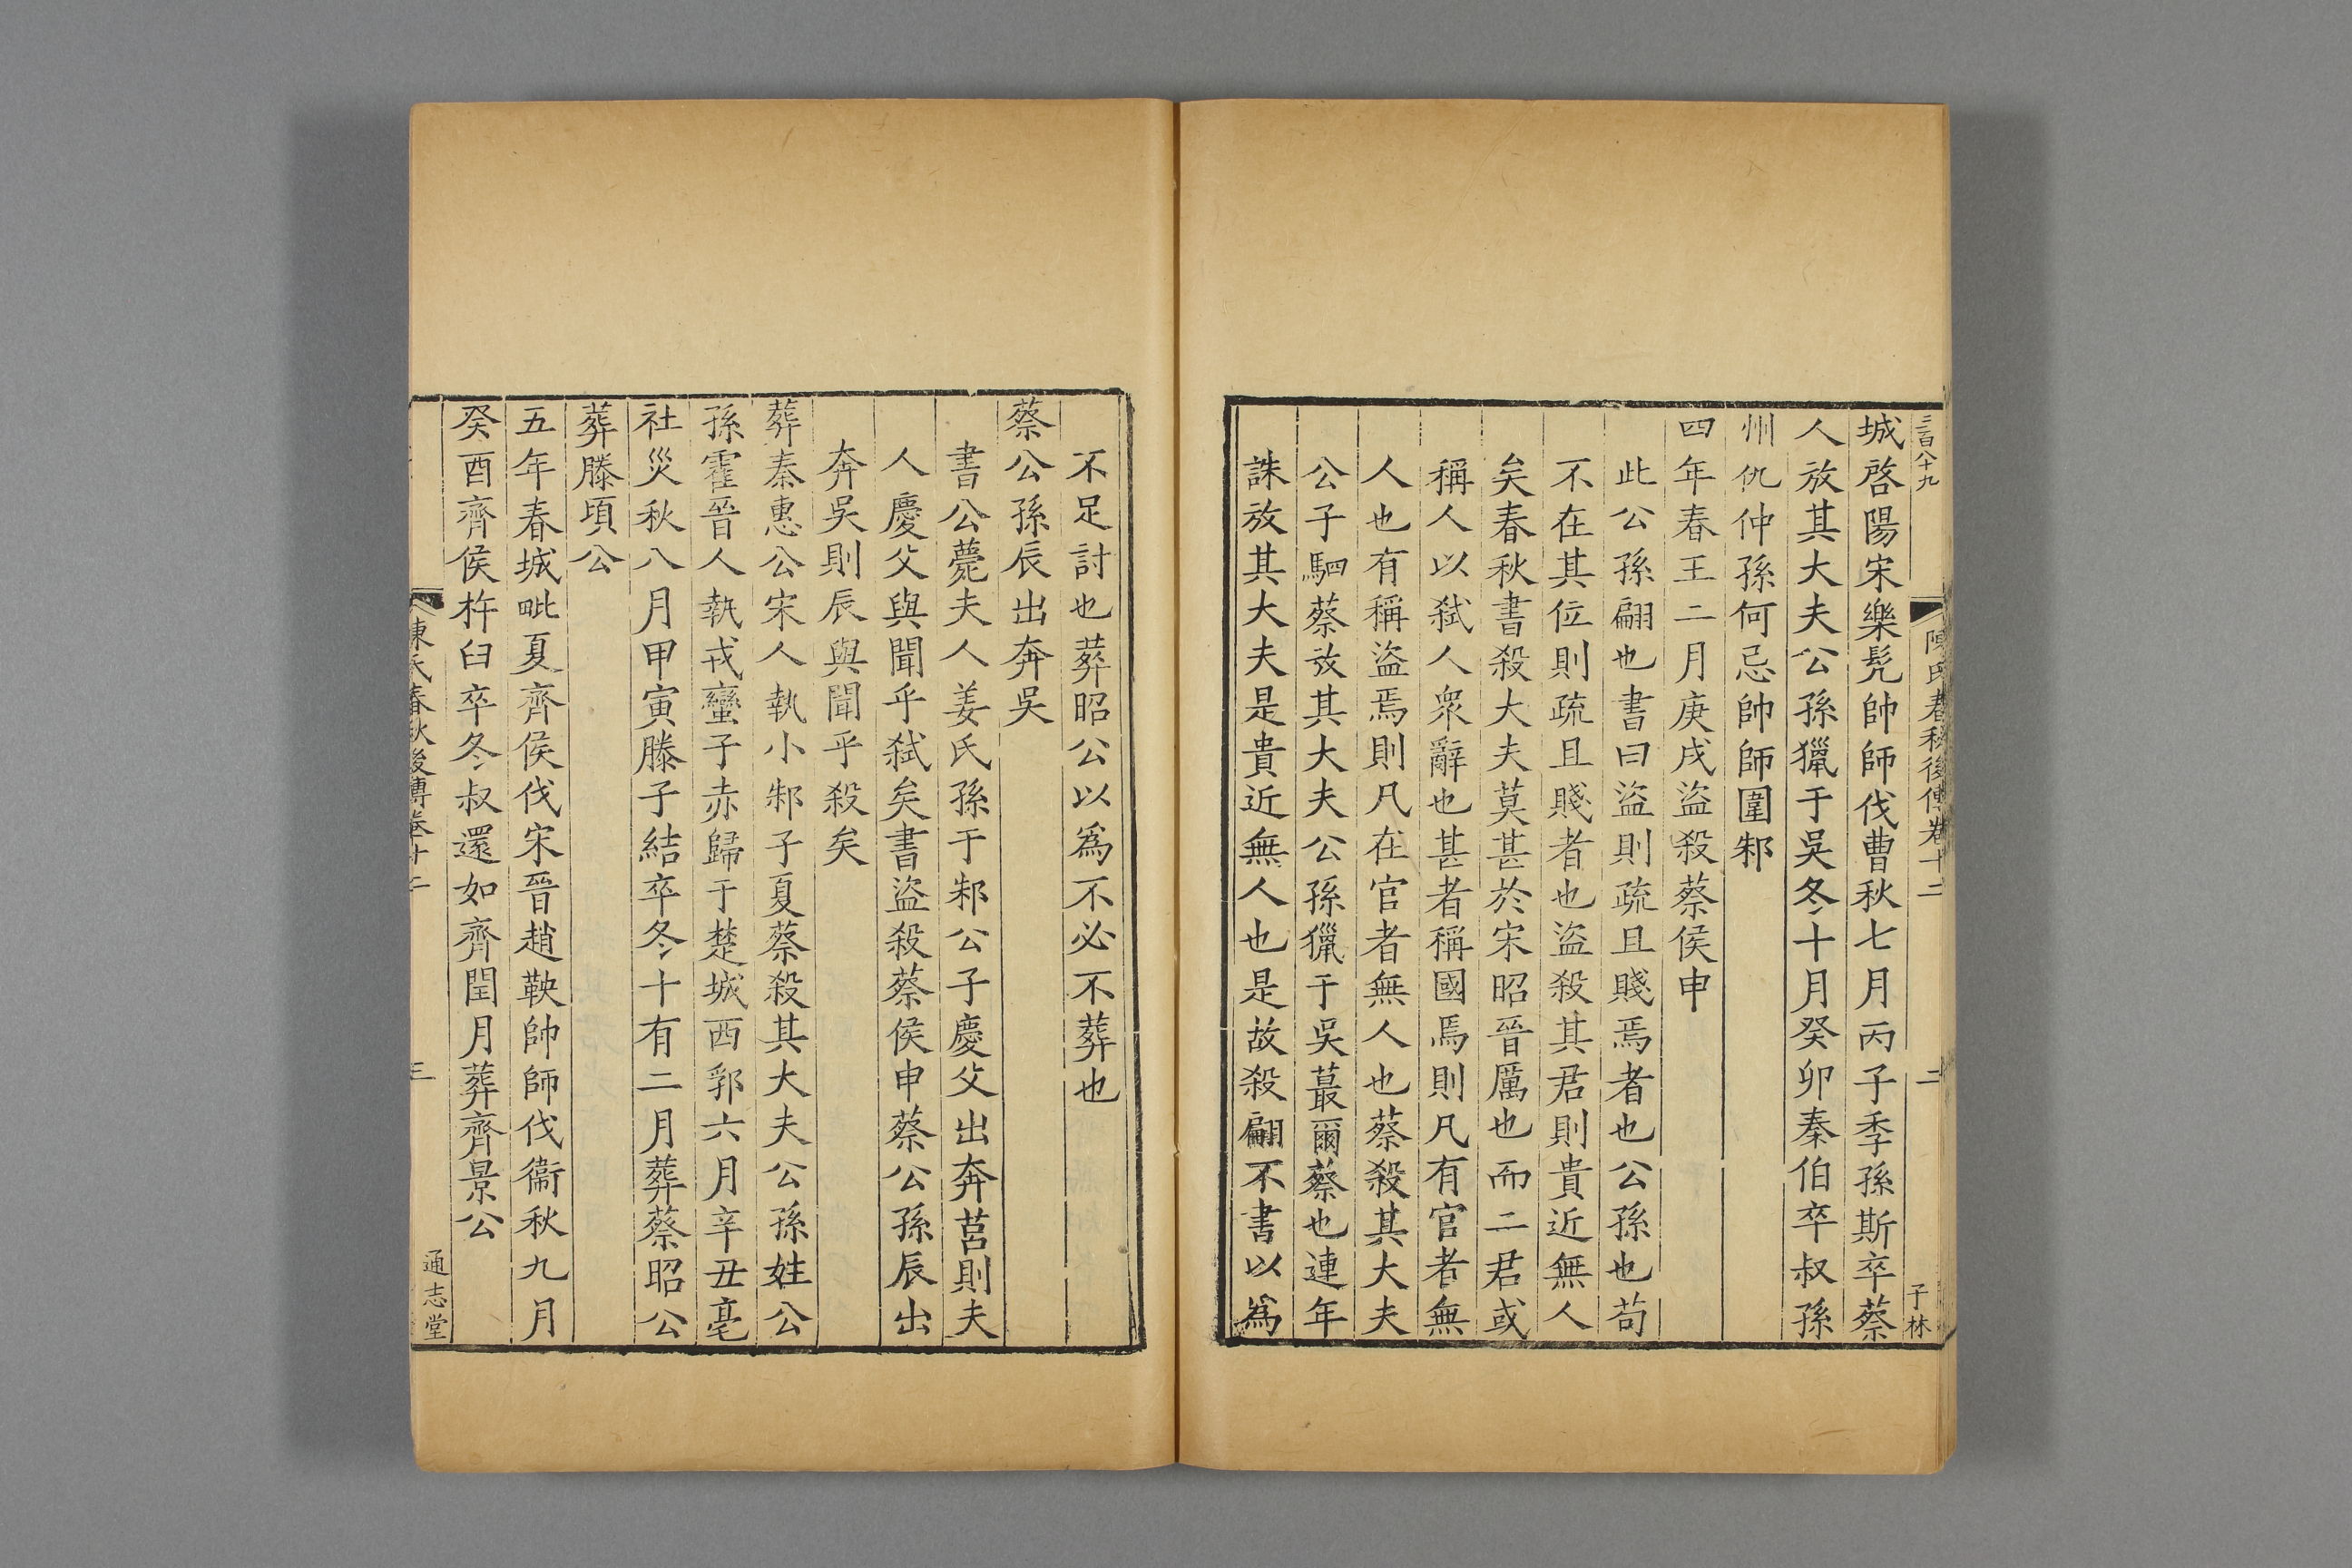 三百八十九
陳氏春秋後傳卷十二
二
子林
城啓陽宋樂髡帥師伐曹秋七月丙子季孫斯卒蔡
人放其大夫公孫獵于吳冬十月癸卯秦伯卒叔孫
州仇仲孫何忌帥師圍邾
四年春王二月庚戌盜殺蔡侯申
此公孫翩也書曰盜則疏且賤焉者也公孫也苟
不在其位則疏且賤者也盜殺其君則貴近無人
矣春秋書殺大夫莫甚於宋昭晉厲也而二君或
稱人以弑人衆辭也甚者稱國焉則凡有官者無
人也有稱盜焉則凡在官者無人也蔡殺其大夫
公子駟蔡放其大夫公孫獵于吳蕞爾蔡也連年
誅放其大夫是貴近無人也是故殺翩不書以爲
不足討也葬昭公以爲不必不葬也
蔡公孫辰出奔吳
書公薨夫人姜氏孫于邾公子慶父出奔莒則夫
人慶父與聞乎弑矣書盜殺蔡侯申蔡公孫辰出
奔吳則辰與聞乎殺矣
葬秦惠公宋人執小邾子夏蔡殺其大夫公孫姓公
孫霍晉人執戎蠻子赤歸于楚城西郛六月辛丑亳
社災秋八月甲寅滕子結卒冬十有二月葬蔡昭公
葬滕頃公
五年春城毗夏齊侯伐宋晉趙鞅帥師伐衞秋九月
癸酉齊侯杵臼卒冬叔還如齊閏月葬齊景公
陳氏春秋後傳卷十二
三
通志堂